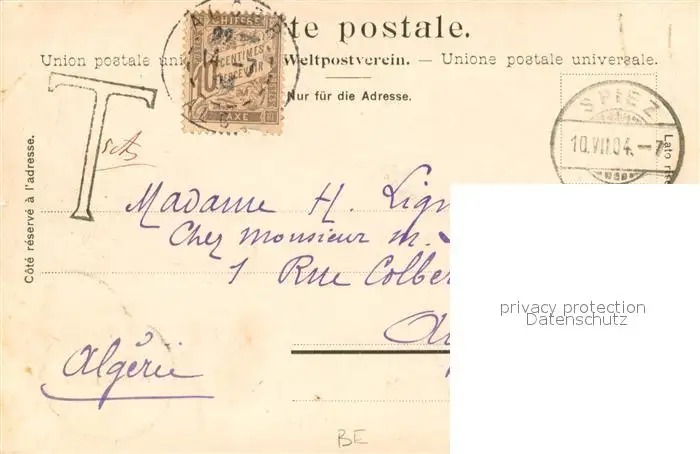 te postale.
Union postale uni Weltpostverein. — Unione postale universale.
Nur für die Adresse.
CHIFFRE
10 CENTIMES
A PERCEVOIR
TAXE
T
SPIEZ
10.VII.04.–7
Côté réservé à l'adresse.
Lato ri
Madame H. Lign
Chez Monsieur M.
1 Rue Colber
Algérie
BE
privacy protection
Datenschutz